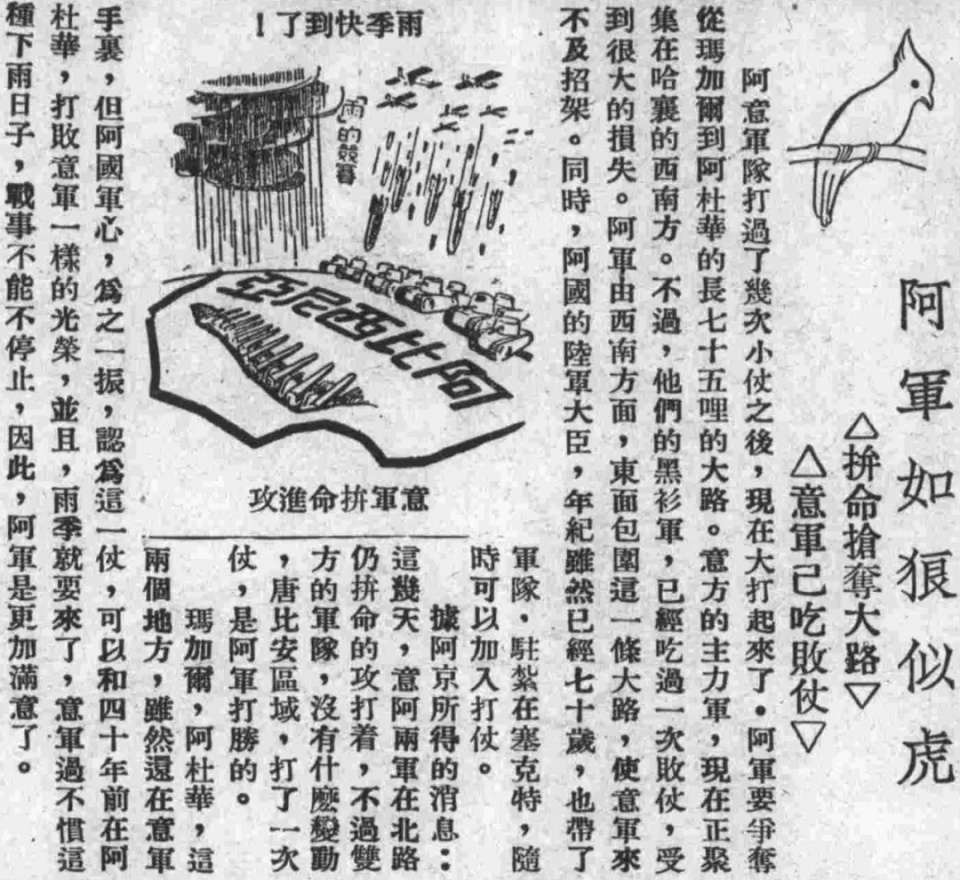 阿軍如狼似虎
△拚命搶奪大路▽
△意軍已吃敗仗▽
阿意軍隊打過了幾次小仗之後，現在大打起來了。阿軍要爭奪
從瑪加爾到阿杜華的長七十五哩的大路。意方的主力軍，現在正聚
集在哈襄的西南方。不過，他們的黑衫軍，已經吃過一次敗仗，受
到很大的損失。阿軍由西南方面，東面包圍這一條大路，使意軍來
不及招架。同時，阿國的陸軍大臣，年紀雖然已經七十歲，也帶了
軍隊，駐紮在塞克特，隨
時可以加入打仗。
據阿京所得的消息：
這幾天，意阿兩軍在北路
仍拚命的攻打着，不過雙
方的軍隊，沒有什麽變動
，唐比安區域，打了一次
仗，是阿軍打勝的。
瑪加爾，阿杜華，這
兩個地方，雖然還在意軍
手裏，但阿國軍心，爲之一振，認爲這一仗，可以和四十年前在阿
杜華，打敗意軍一樣的光榮，並且，雨季就要來了，意軍過不慣這
種下雨日子，戰事不能不停止，因此，阿軍是更加滿意了。
雨季快到了！
「雨」的競賽
阿比西尼亞
意軍拚命進攻